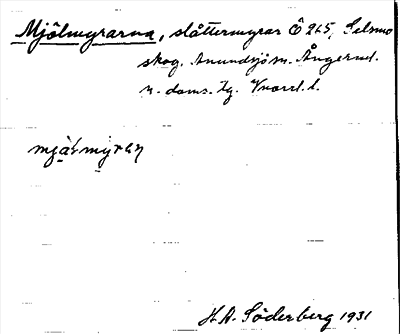 Mjölmyrarna, slåttermyrar Ö 265, Selsmo
skog. Anundsjö sn. Ångerml.
n. doms. tg. Vnorrl. l.
H.A. Söderberg 1931